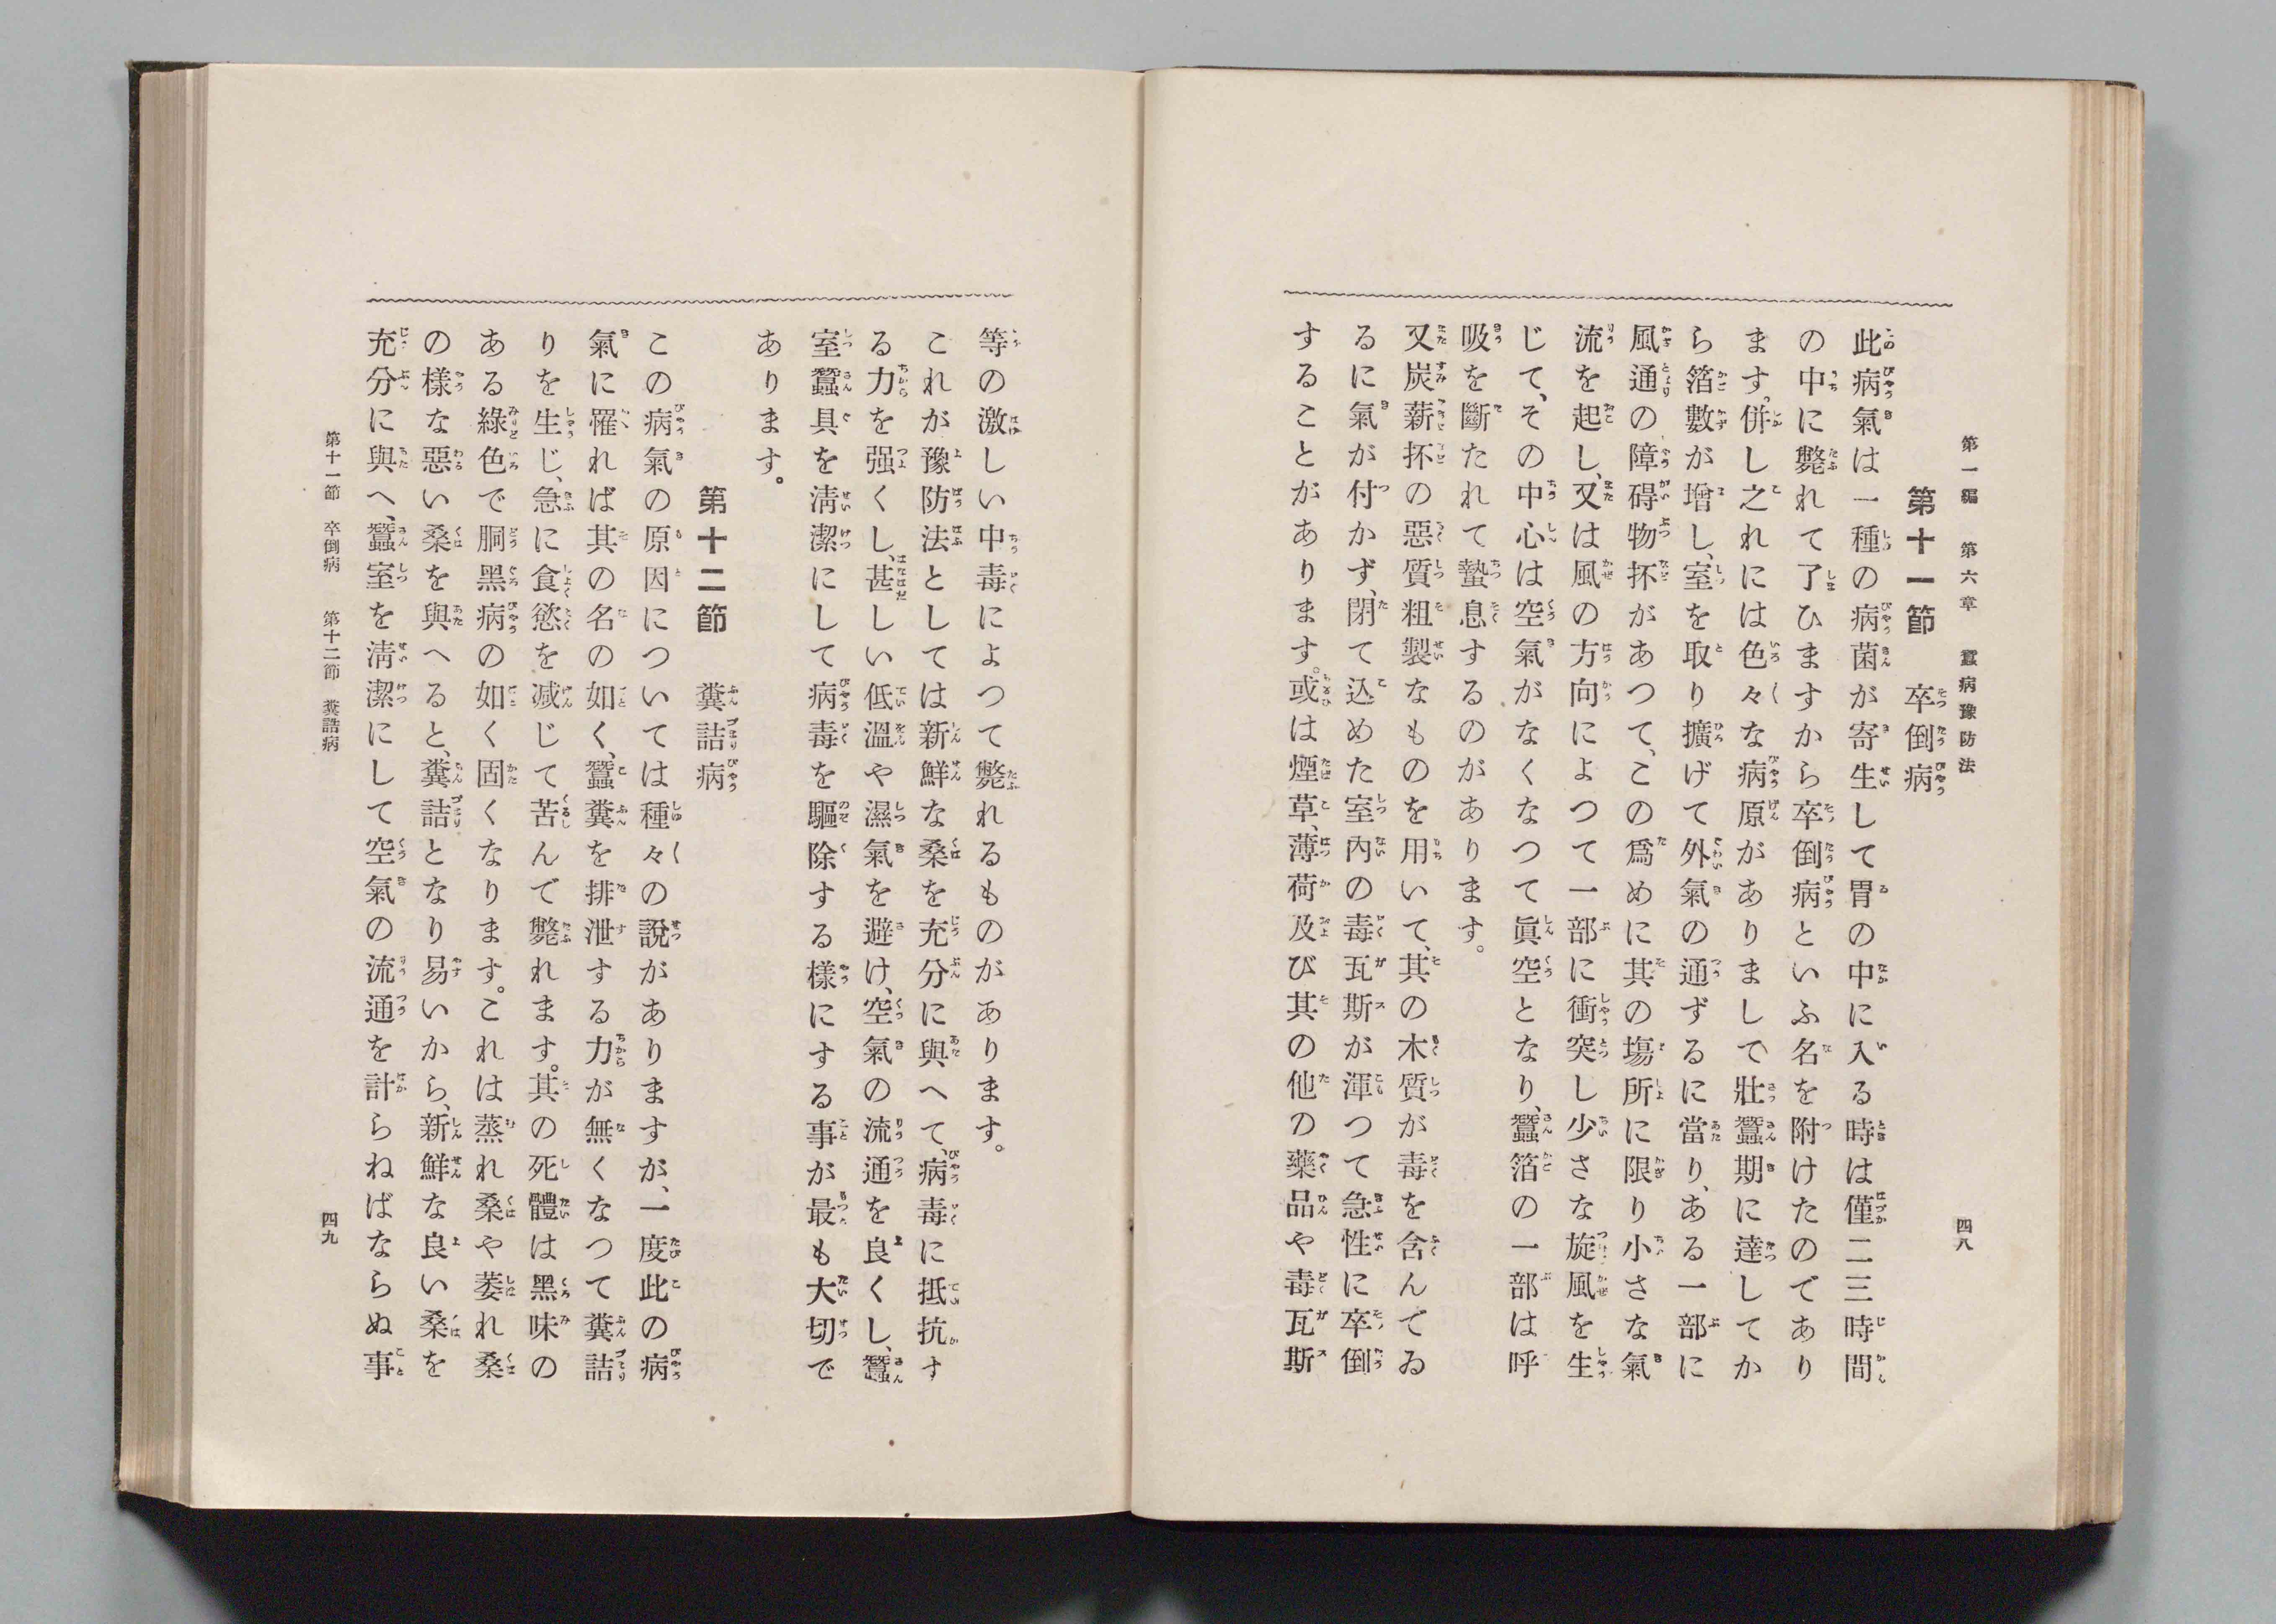 第一編　第六章　蠶病豫防法
四八
第十一節　卒倒病
此病氣は一種の病菌が寄生して胃の中に入る時は僅二三時間
の中に斃れて了ひますから卒倒病といふ名を附けたのであり
ます。併し之れには色々な病原がありまして壯蠶期に達してか
ら箔數が增し、室を取り擴げて外氣の通ずるに當り、ある一部に
風通の障碍物抔があつて、この爲めに其の塲所に限り小さな氣
流を起し、又は風の方向によつて一部に衝突し少さな旋風を生
じて、その中心は空氣がなくなつて眞空となり、蠶箔の一部は呼
吸を斷たれて蟄息するのがあります。
又炭薪抔の惡質粗製なものを用いて、其の木質が毒を含んでゐ
るに氣が付かず、閉て込めた室內の毒瓦斯が渾つて急性に卒倒
することがあります。或は煙草、薄荷及び其の他の藥品や毒瓦斯
等の激しい中毒によつて斃れるものがあります。
これが豫防法としては新鮮な桑を充分に與へて、病毒に抵抗す
る力を强くし、甚しい低溫や濕氣を避け、空氣の流通を良くし、蠶
室蠶具を淸潔にして病毒を驅除する樣にする事が最も大切で
あります。
第十二節　糞詰病
この病氣の原因については種々の說がありますが、一度此の病
氣に罹れば其の名の如く、蠶糞を排泄する力が無くなつて糞詰
りを生じ、急に食慾を減じて苦んで斃れます。其の死體は黑味の
ある綠色で胴黑病の如く固くなります。これは蒸れ桑や萎れ桑
の樣な惡い桑を與へると、糞詰となり易いから、新鮮な良い桑を
充分に與へ、蠶室を淸潔にして空氣の流通を計らねばならぬ事
第十一節　卒倒病　第十二節　糞詰病
四九